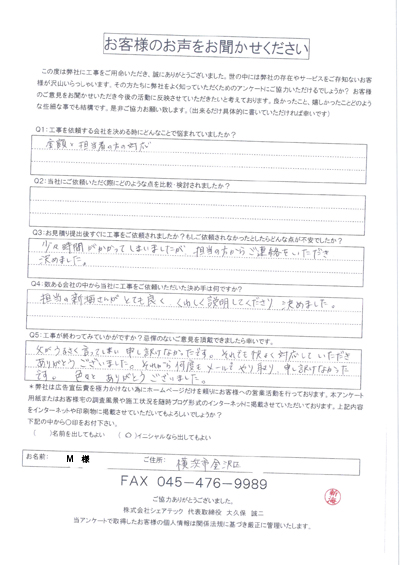 お客様のお声をお聞かせください
この度は弊社に工事をご用命いただき、誠にありがとうございました。世の中には弊社の存在やサービスをご存知ないお客
様が沢山いらっしゃいます。その方たちに弊社をよく知っていただくためのアンケートにご協力いただけるでしょうか？ お客様
のご意見をお聞かせいただき今後の活動に反映させていただきたいと考えております。良かったこと、嬉しかったことどのよう
な些細な事でも結構です。是非ご協力お願い致します。（出来るだけ具体的に書いていただければ幸いです）
Q1：工事を依頼する会社を決める時にどんなことで悩まれていましたか？
金額と担当者の方の対応
Q2：当社にご依頼いただく際にどのような点を比較・検討されましたか？
Q3：お見積り提出後すぐに工事をご依頼されましたか？もしご依頼されなかったとしたらどんな点が不安でしたか？
少し時間がかかってしまいましたが、担当の方からご連絡をいただき
決めました。
Q4：数ある会社の中から当社に工事をご依頼いただいた決め手は何ですか？
担当の新海さんがとても良く、くわしく説明してくださり 決めました。
Q5：工事が終わってみていかがですか？忌憚のないご意見を頂戴できましたら幸いです。
父がうるさく言ってしまい 申し訳けなかったです。それでも快よく対応していただき
ありがとうございました。それから何度もメールでやり取り、申し訳けなかった
です。色々とありがとうございました。
＊弊社は広告宣伝費を極力かけない為にホームページだけを頼りにお客様への営業活動を行っております。本アンケート
用紙またはお客様宅の調査風景や施工状況を随時ブログ形式のインターネットに掲載させていただいております。上記内容
をインターネットや印刷物に掲載させていただいてもよろしいでしょうか？
下記の中から○印をお付け下さい。
（　）名前を出してもよい （○）イニシャルなら出してもよい
お名前： M 様 ご住所： 横浜市金沢区
FAX 045-476-9989
新海
ご協力ありがとうございました。
株式会社シェアテック 代表取締役 大久保 誠二
当アンケートで取得したお客様の個人情報は関係法規に基づき厳正に管理いたします。